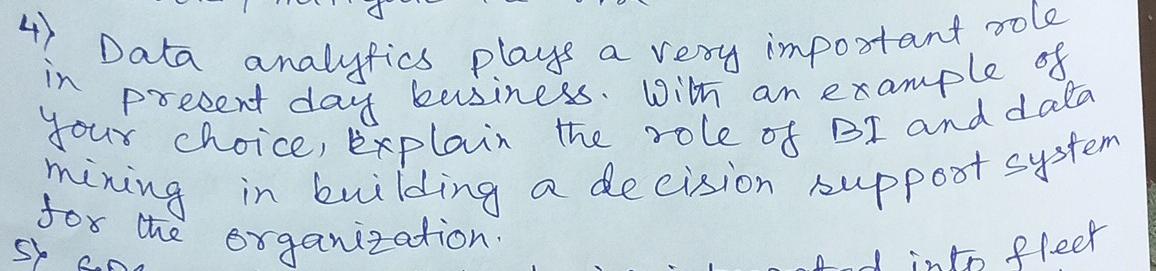 4) Data analytics plays a very important role
in present day business. With an example of
your choice, Explain the role of BI and data
mining in building a decision support system
for the organization.
5) into fleet